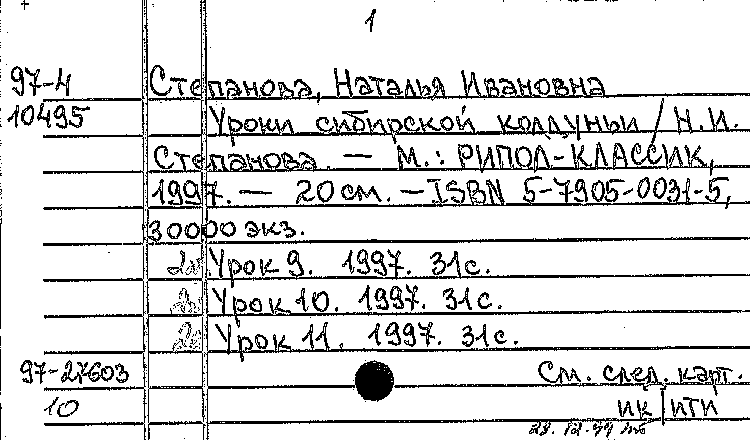 1
97-4 Степанова, Наталья Ивановна
10495 Уроки сибирской колдуньи / Н.И.
Степанова. — М.: РИПОЛ-КЛАССИК,
1997. — 20 см. — ISBN 5-7905-0031-5,
30000 экз.
2э Урок 9. 1997. 31с.
Урок 10. 1997. 31с.
Урок 11. 1997. 31с.
97-27603 См. след. карт.
10 ик|ити